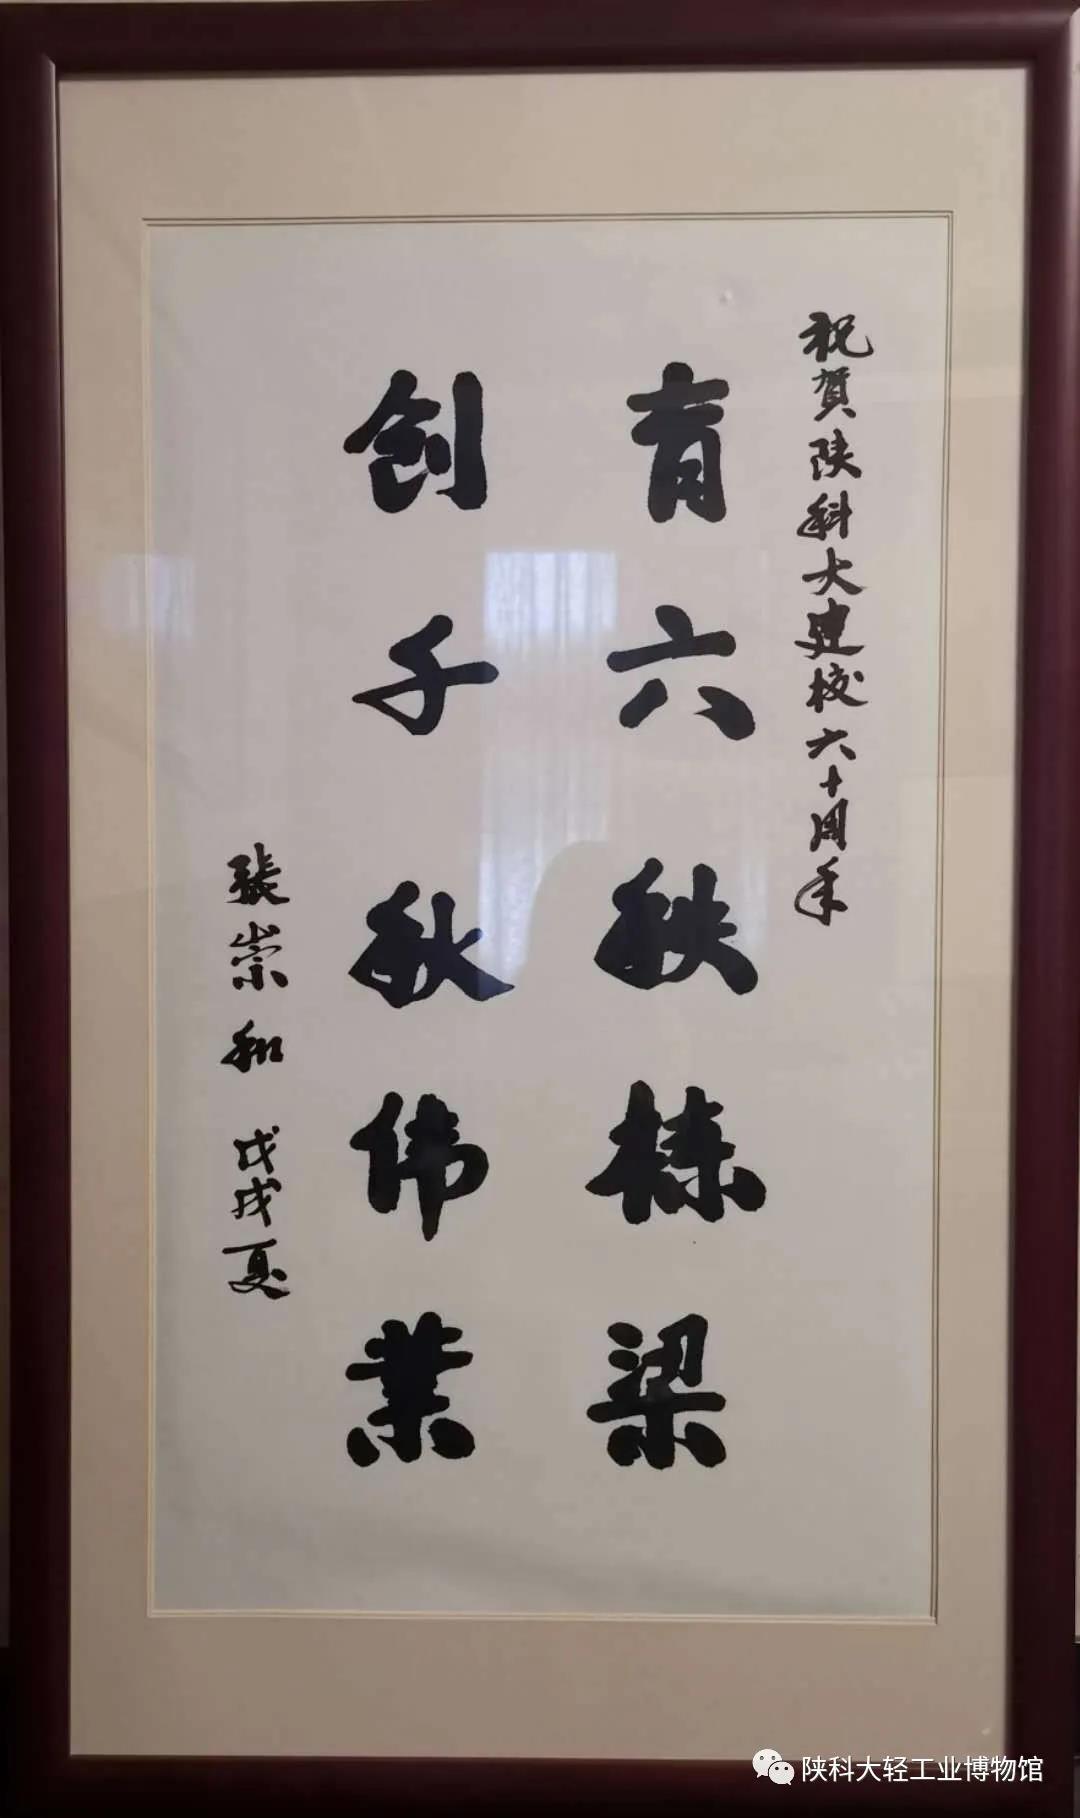 祝賀陕科大建校六十周年
育六秩栋梁
创千秋伟業
張崇和 戊戌夏
陕科大轻工业博物馆